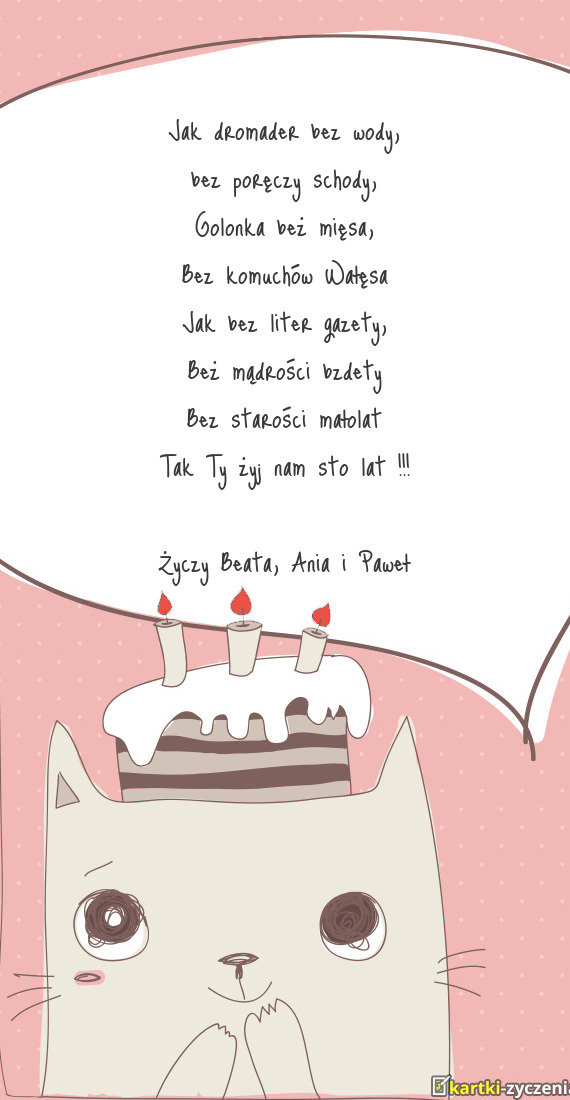 Jak dromader bez wody,
bez poręczy schody,
Golonka beż mięsa,
Bez komuchów Wałęsa
Jak bez liter gazety,
Beż mądrości bzdety
Bez starości małolat
Tak Ty żyj nam sto lat !!!
Życzy Beata, Ania i Paweł
kartki-zyczenia